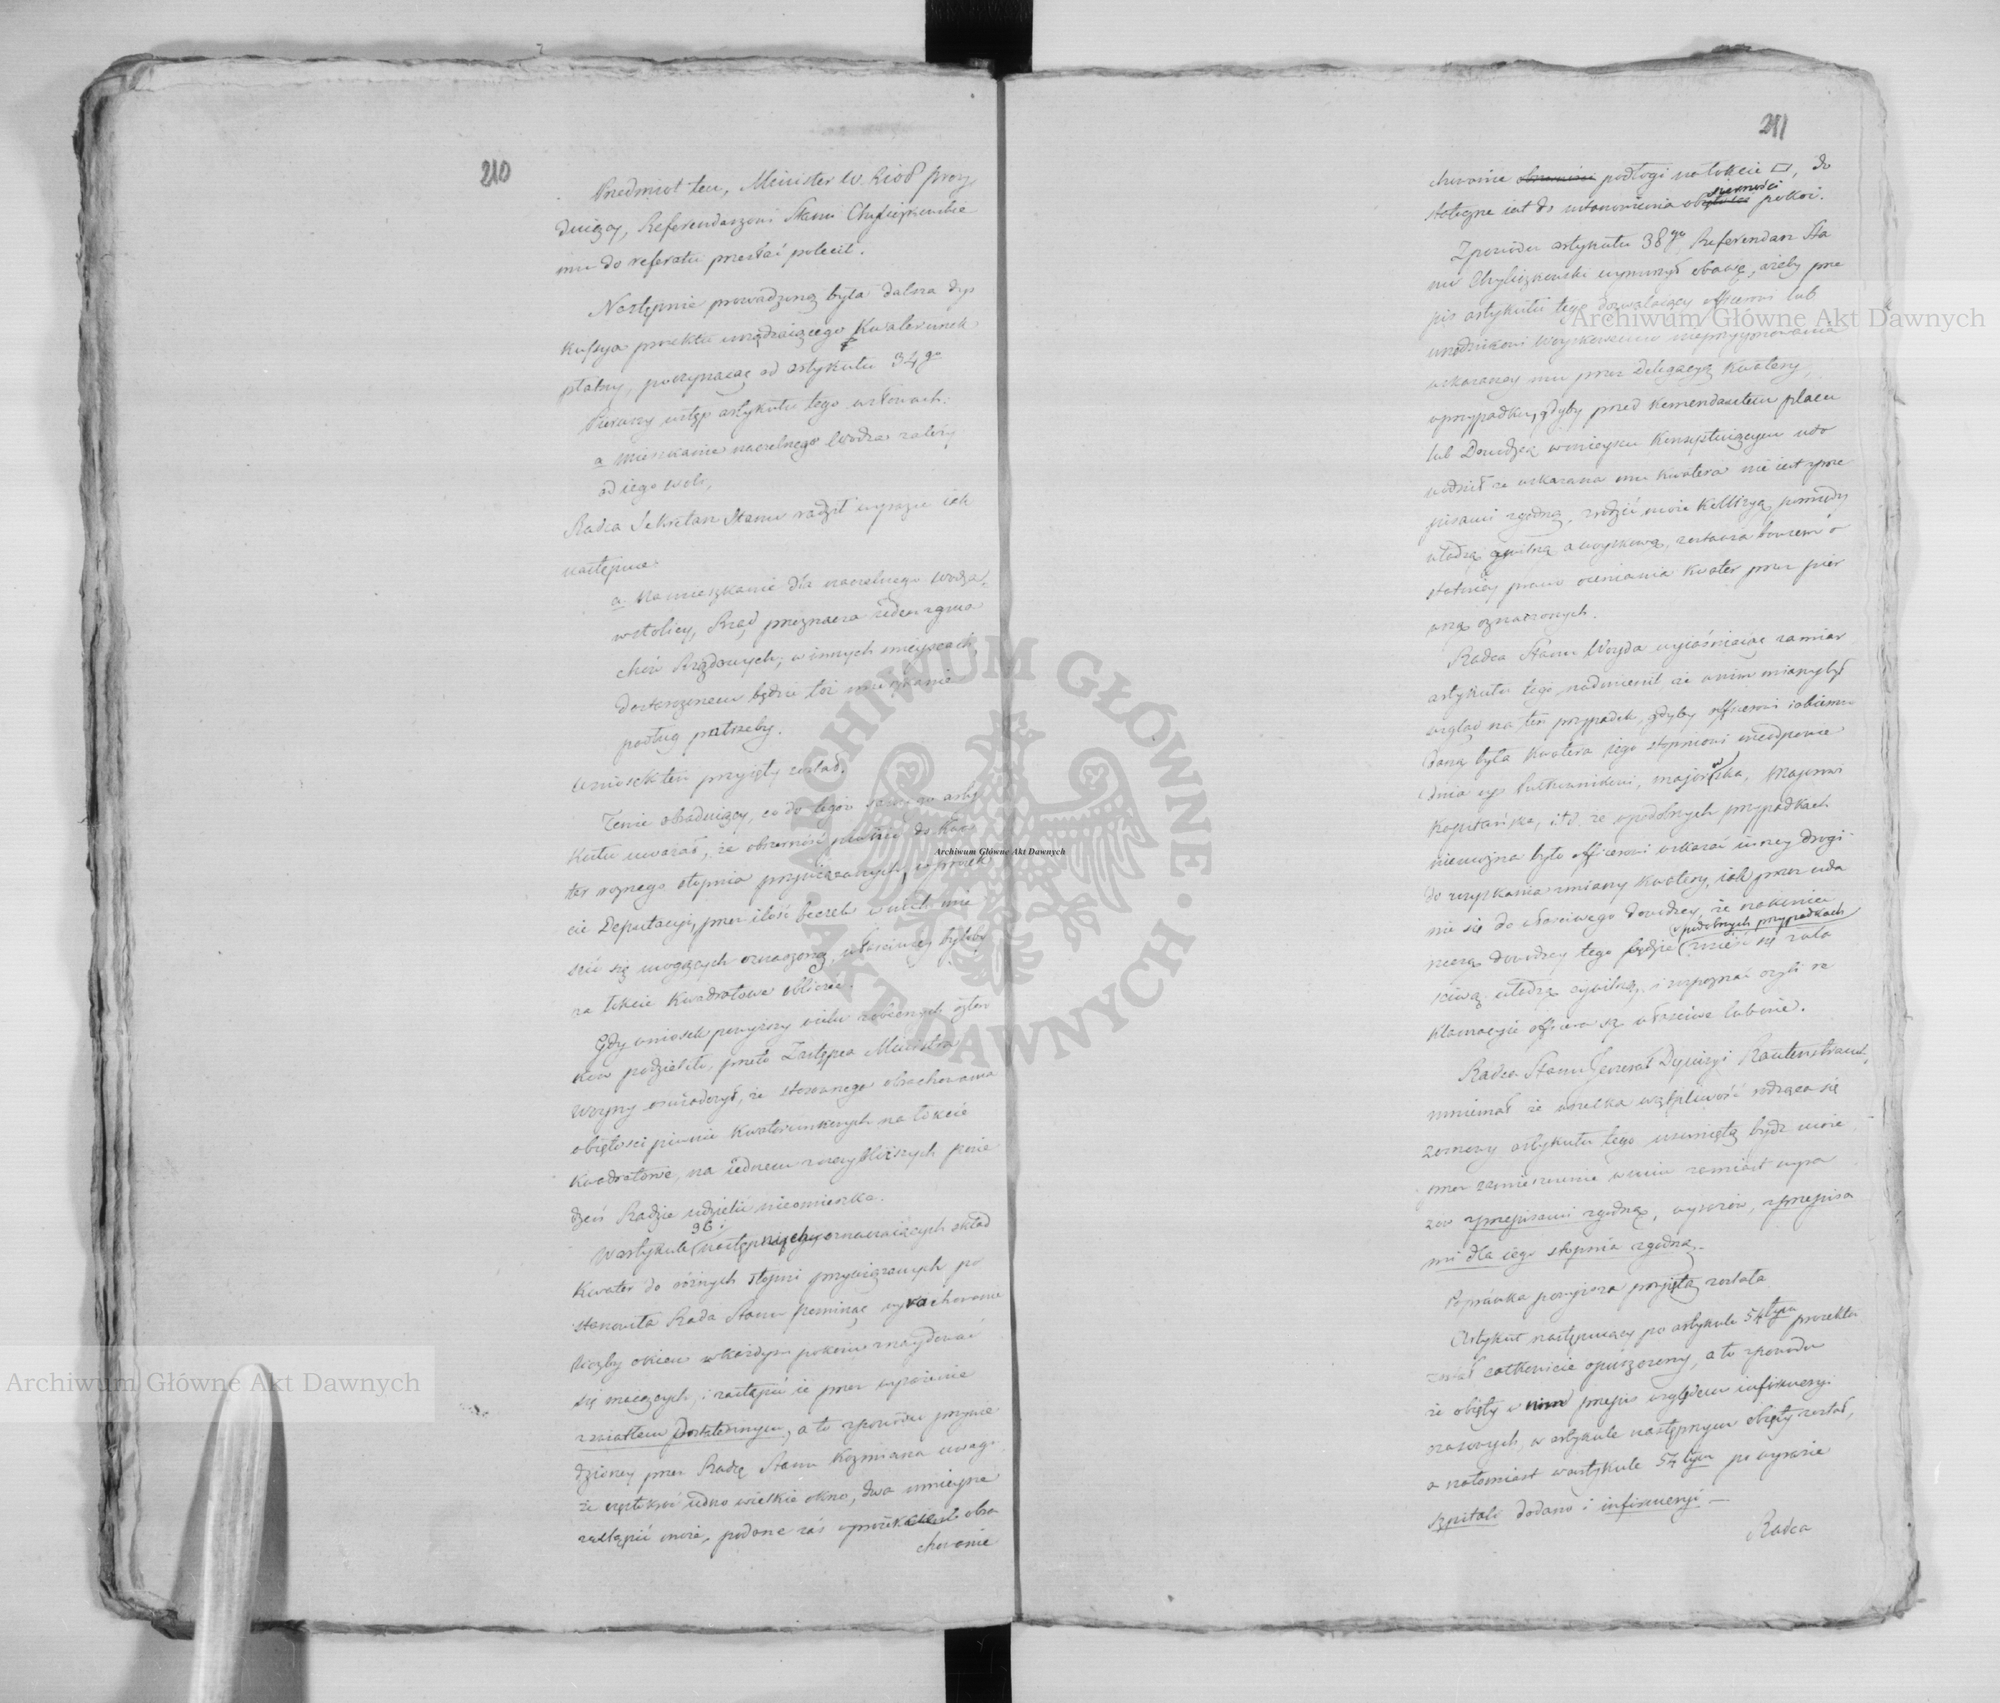 210
Przedmiot ten, Minister
dniczący, Referendarzowi Stanu Chyliczkowskie
mu do referatu przesłać polecił.
Następnie prowadzoną była dalsza dys
kussya proiektu urządzaiącego Kwaterunek
płatny, poczynaiąc od artykułu 34go
Pierwszy ustęp artykułu tego w słowach:
a mieszkanie naczelnego Wodza zależy
od iego woli,
Radca Sekretarz Stanu radził wyrazić iak
następuie.
a. Na mieszkanie dla naczelnego Wodza,
w stolicy, Rząd przeznacza ieden z gma
chów Rządowych; w innych mieyscach,
dostarczonem będzie toż mieszkanie
podług potrzeby.
Wniosek ten przyięty został.
Tenże obradujący, co do tegoż samego arty
kułu uważał, że obszerność
ter roznego stopnia przywiązanych, w proiek
cie Deputacyi, przez ilość beczek w nich mie
ścić się mogących oznaczoną, właściwiey byłoby
na łokcie kwadratowe obliczać.
Gdy wniosek powyższy wielu obecnych człon
ków podzieliło, przeto Zastępca Ministra
Woyny oświadczył, że stosownego obrachowania
obiętości piwnic kwaterunkowych na łokcie
kwadratowe, na iednem z naybliższych posie
dzeń Radzie udzielić nieomieszka.
W artykule 36 i następnych, oznaczaiących skład
kwater do różnych stopni przywiązanych po
stanowiła Rada Stanu pominąć wyrachowanie
liczby okien w każdym pokoiu znaydować
się maiących, i zastąpić ie przez wyrażenie
z światłem dostatecznym, a to z powodu przywie
dzioney przez Radcę Stanu Koźmiana uwagi,
że częstokroć iedno wielkie okno, dwa mnieysze
zastąpić może, podane zaś w proiekcie obra
chowanie
211
chowanie podłogi na łokcie □, do
stateczne iest do ustanowienia obszerności pokoi.
Z powodu artykułu 38go Referendarz Sta
nu Chyliczkowski wynurzył obawę, ażeby prze
pis artykułu tego dozwalaiący officerowi lub
urzędnikowi Woyskowemu nieprzyymowania
wskazaney mu przez Delegacyą kwatery,
w przypadku, gdyby przed Komendantem placu
lub Dowódzcą w mieyscu konsystuiącym udo
wodnił że wskazana mu kwatera nie iest z prze
pisami zgodną, zrodzić może kollizyą pomiędzy
władzą cywilną a woyskową,
statniey prawo oceniania kwater przez pier
wszą oznaczonych.
Radca Stanu Woyda wyiaśniaiąc zamiar
artykułu tego nadmienił że w nim miany był
wzgląd na ten przypadek, gdyby officerowi iakiemu
daną była kwatera iego stopniowi nieodpowie
dnia np. Pułkownikowi, majorowska, Majorowi
Kapitańska, itd. że w podobnych przypadkach
niemożna było officerowi wskazać inney drogi
do uzyskania zmiany kwatery, iak przez uda
nie się do właściwego dowódzcy, że nakoniec
rzeczą dowódzcy tego będzie w podobnych przypadkach znieść się z wła
ściwą władzą cywilną, i rozpoznać czyli re
klamacyie officera są właściwe lub nie.
Radca Stanu Generał Dywizyi Rautenstrauch,
mniemał że wszelka wątpliwość rodząca się
z osnowy artykułu tego usuniętą bydź może
przez zamieszczenie w nim zamiast wyra
zów z przepisami zgodną, wyrazów, z przepisa
mi dla iego stopnia zgodną.
Poprawka powyższa przyiętą została
Artykuł następuiący po artykule 54tym proiektu
został całkowicie opuszczony, a to z powodu
że obięty w nim przepis względem infirmeryi
, w artykule następnym obięty został,
a natomiast w artykule 54tym po wyrazie
szpitale dodano i infirmeryi —
Radca
Archiwum Główne Akt Dawnych
Archiwum Główne Akt Dawnych
Archiwum Główne Akt Dawnych
ARCHIWUM GŁÓWNE · AKT DAWNYCH ·